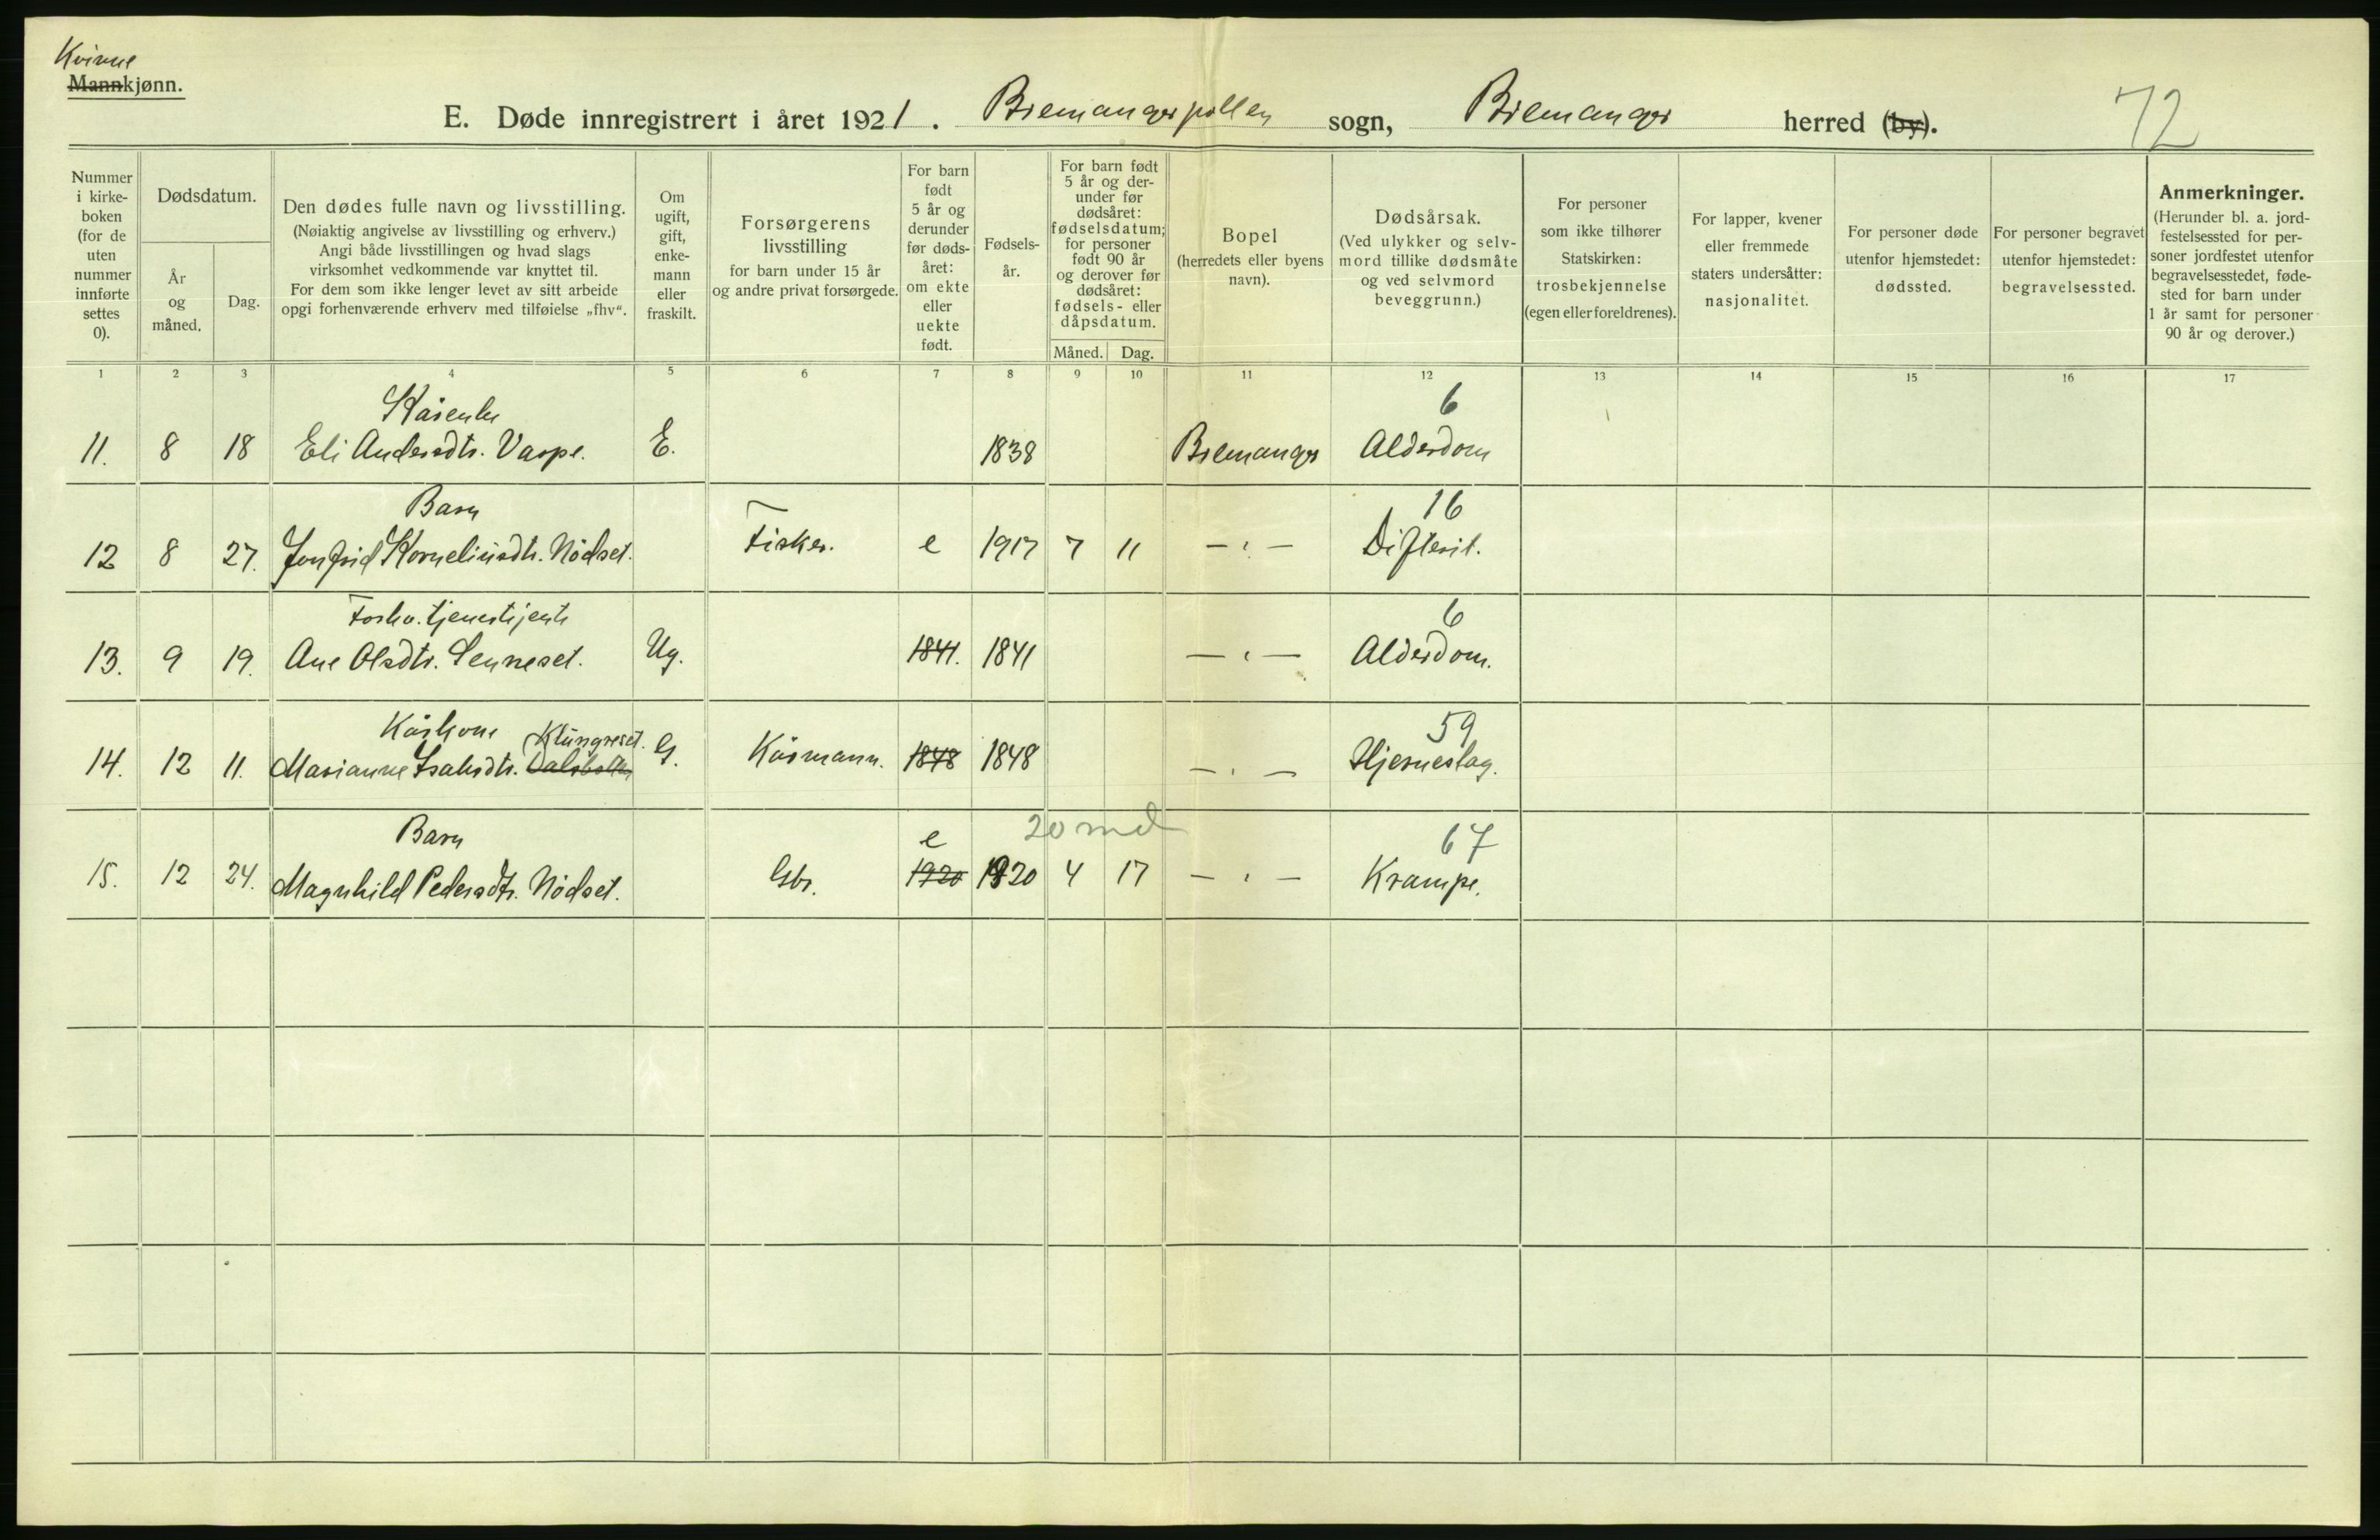 Kvinne
Mannkjønn.
E. Døde innregistrert i året 1921. Bremangerpollen sogn, Bremanger herred (by).
72
Nummer i kirke- boken (for de uten nummer innførte settes 0).
Dødsdatum.
År og måned.
Dag.
Den dødes fulle navn og livsstilling.
(Nøiaktig angivelse av livsstilling og erhverv.)
Angi både livsstillingen og hvad slags
virksomhet vedkommende var knyttet til.
For dem som ikke lenger levet av sitt arbeide
opgi forhenværende erhverv med tilføielse „fhv“.
Om ugift, gift, enke- mann eller fraskilt.
Forsørgerens livsstilling
for barn under 15 år
og andre privat forsørgede.
For barn født 5 år og derunder før døds- året: om ekte eller uekte født.
Fødsels- år.
For barn født 5 år og der- under før dødsåret: fødselsdatum; for personer født 90 år og derover før dødsåret: fødsels- eller dåpsdatum.
Måned. Dag.
Bopel
(herredets eller byens navn).
Dødsårsak.
(Ved ulykker og selv- mord tillike dødsmåte og ved selvmord beveggrunn.)
For personer som ikke tilhører Statskirken: trosbekjennelse (egen eller foreldrenes).
For lapper, kvener eller fremmede staters undersåtter: nasjonalitet.
For personer døde utenfor hjemstedet: dødssted.
For personer begravet utenfor hjemstedet: begravelsessted.
Anmerkninger.
(Herunder bl. a. jord- festelsessted for per- soner jordfestet utenfor begravelsesstedet, føde- sted for barn under 1 år samt for personer 90 år og derover.)
1 2 3 4 5 6 7 8 9 10 11 12 13 14 15 16 17
Kårenke 6
11. 8 18 Eli Andersdtr. Varpe. E. 1838 Bremanger Alderdom
Barn 16
12 8 27. Jonfrid Korneliusdtr. Nödset. Fisker. e 1917 7 11 — „ — Difterit.
Forhv. tjenestjente 6
13. 9 19. Ane Olsdtr. Senneset. Ug. 1841. 1841 — „ — Alderdom.
Kårkone Klungreset. 59
14. 12 11. Marianne Isaksdtr. G. Kårmann. 1848 1848 — „ — Hjerneslag.
Barn e 20 md 67
15. 12 24. Magnhild Pedersdtr. Nödset. Gbr. 1920 1920 4 17 — „ — Krampe.